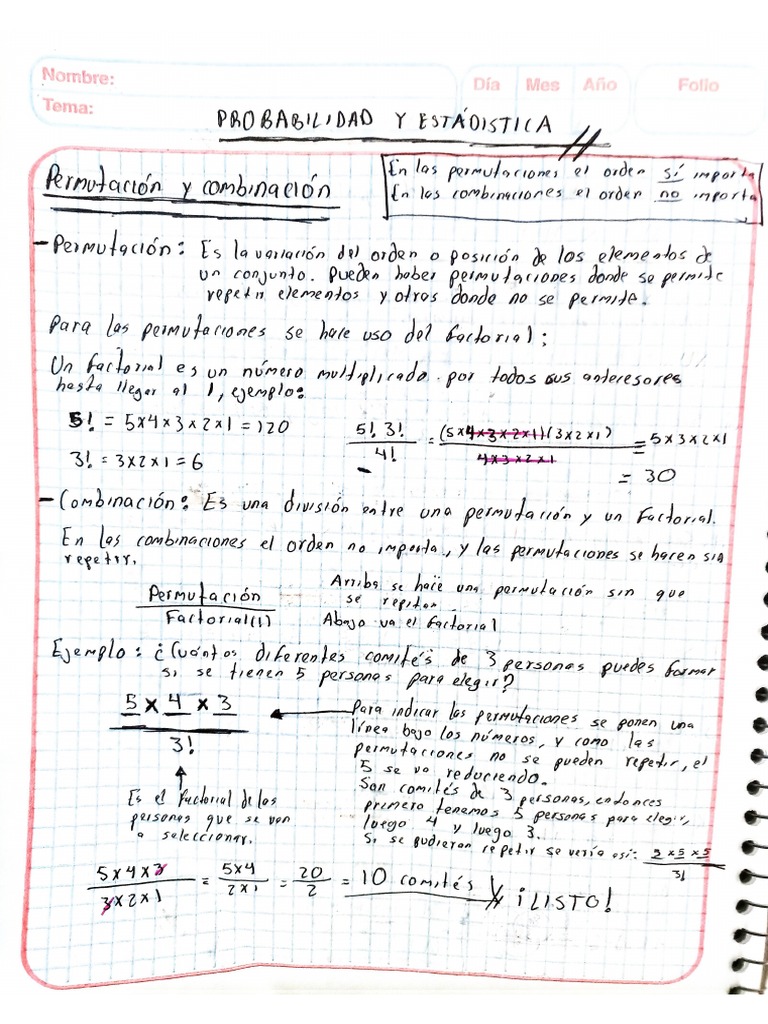 Nombre:
Tema:
Día Mes Año Folio
PROBABILIDAD Y ESTÁDISTICA
Permutación y combinación
En las permutaciones el orden sí importa
En las combinaciones el orden no importa
- Permutación: Es la variación del orden o posición de los elementos de
un conjunto. Pueden haber permutaciones donde se permite
repetir elementos y otras donde no se permite.
Para las permutaciones se hace uso del factorial:
Un factorial es un número multiplicado por todos sus anteresores
hasta llegar al 1, ejemplo:
5! = 5x4x3x2x1 = 120
3! = 3x2x1 = 6
5! 3! / 4! = (5x4x3x2x1)(3x2x1) / 4x3x2x1 = 5x3x2x1
= 30
- Combinación: Es una división entre una permutación y un Factorial.
En las combinaciones el orden no importa, y las permutaciones se hacen sin
repetir.
Permutación
Factorial(!)
Arriba se hace una permutación sin que
se repitan
Abajo va el factorial
Ejemplo: ¿Cuántos diferentes comités de 3 personas puedes formar
si se tienen 5 personas para elegir?
5 x 4 x 3
3!
Es el factorial de las
personas que se van
a seleccionar.
Para indicar las permutaciones se ponen una
línea bajo los números, y como las
permutaciones no se pueden repetir, el
5 se va reduciendo.
Son comités de 3 personas, entonces
primero tenemos 5 personas para elegir,
luego 4 y luego 3.
Si se pudieran repetir se vería así: 5 x 5 x 5 / 3!
5x4x3 / 3x2x1 = 5x4 / 2x1 = 20 / 2 = 10 comités
¡LISTO!